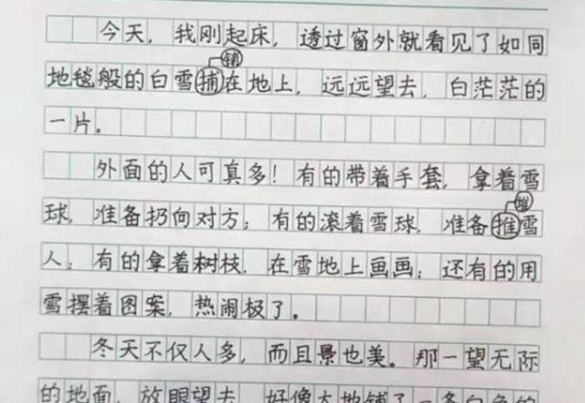 今天，我刚起床，透过窗外就看见了如同
铺
地毯般的白雪捕在地上，远远望去，白茫茫的
一片。
外面的人可真多！有的带着手套，拿着雪
堆
球，准备扔向对方；有的滚着雪球，准备推雪
人；有的拿着树枝，在雪地上画画；还有的用
雪摆着图案，热闹极了。
冬天不仅人多，而且景也美。那一望无际
的地面，放眼望去，好像大地铺了一条白色的